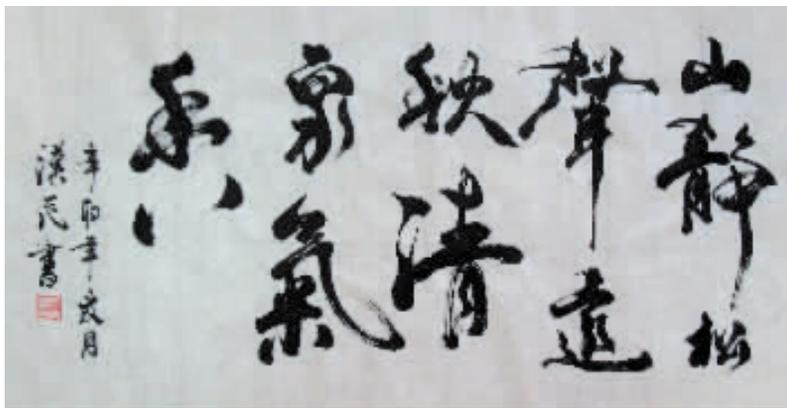 山静松
聲遠
秋清
泉氣
香
辛卯年月
漢書